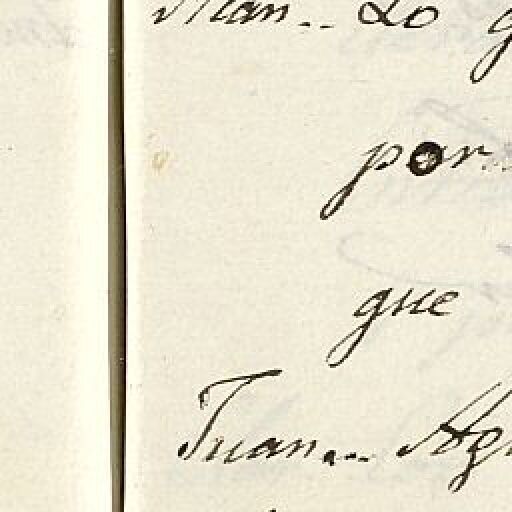 Juan.. Lo
por
que
Juan...